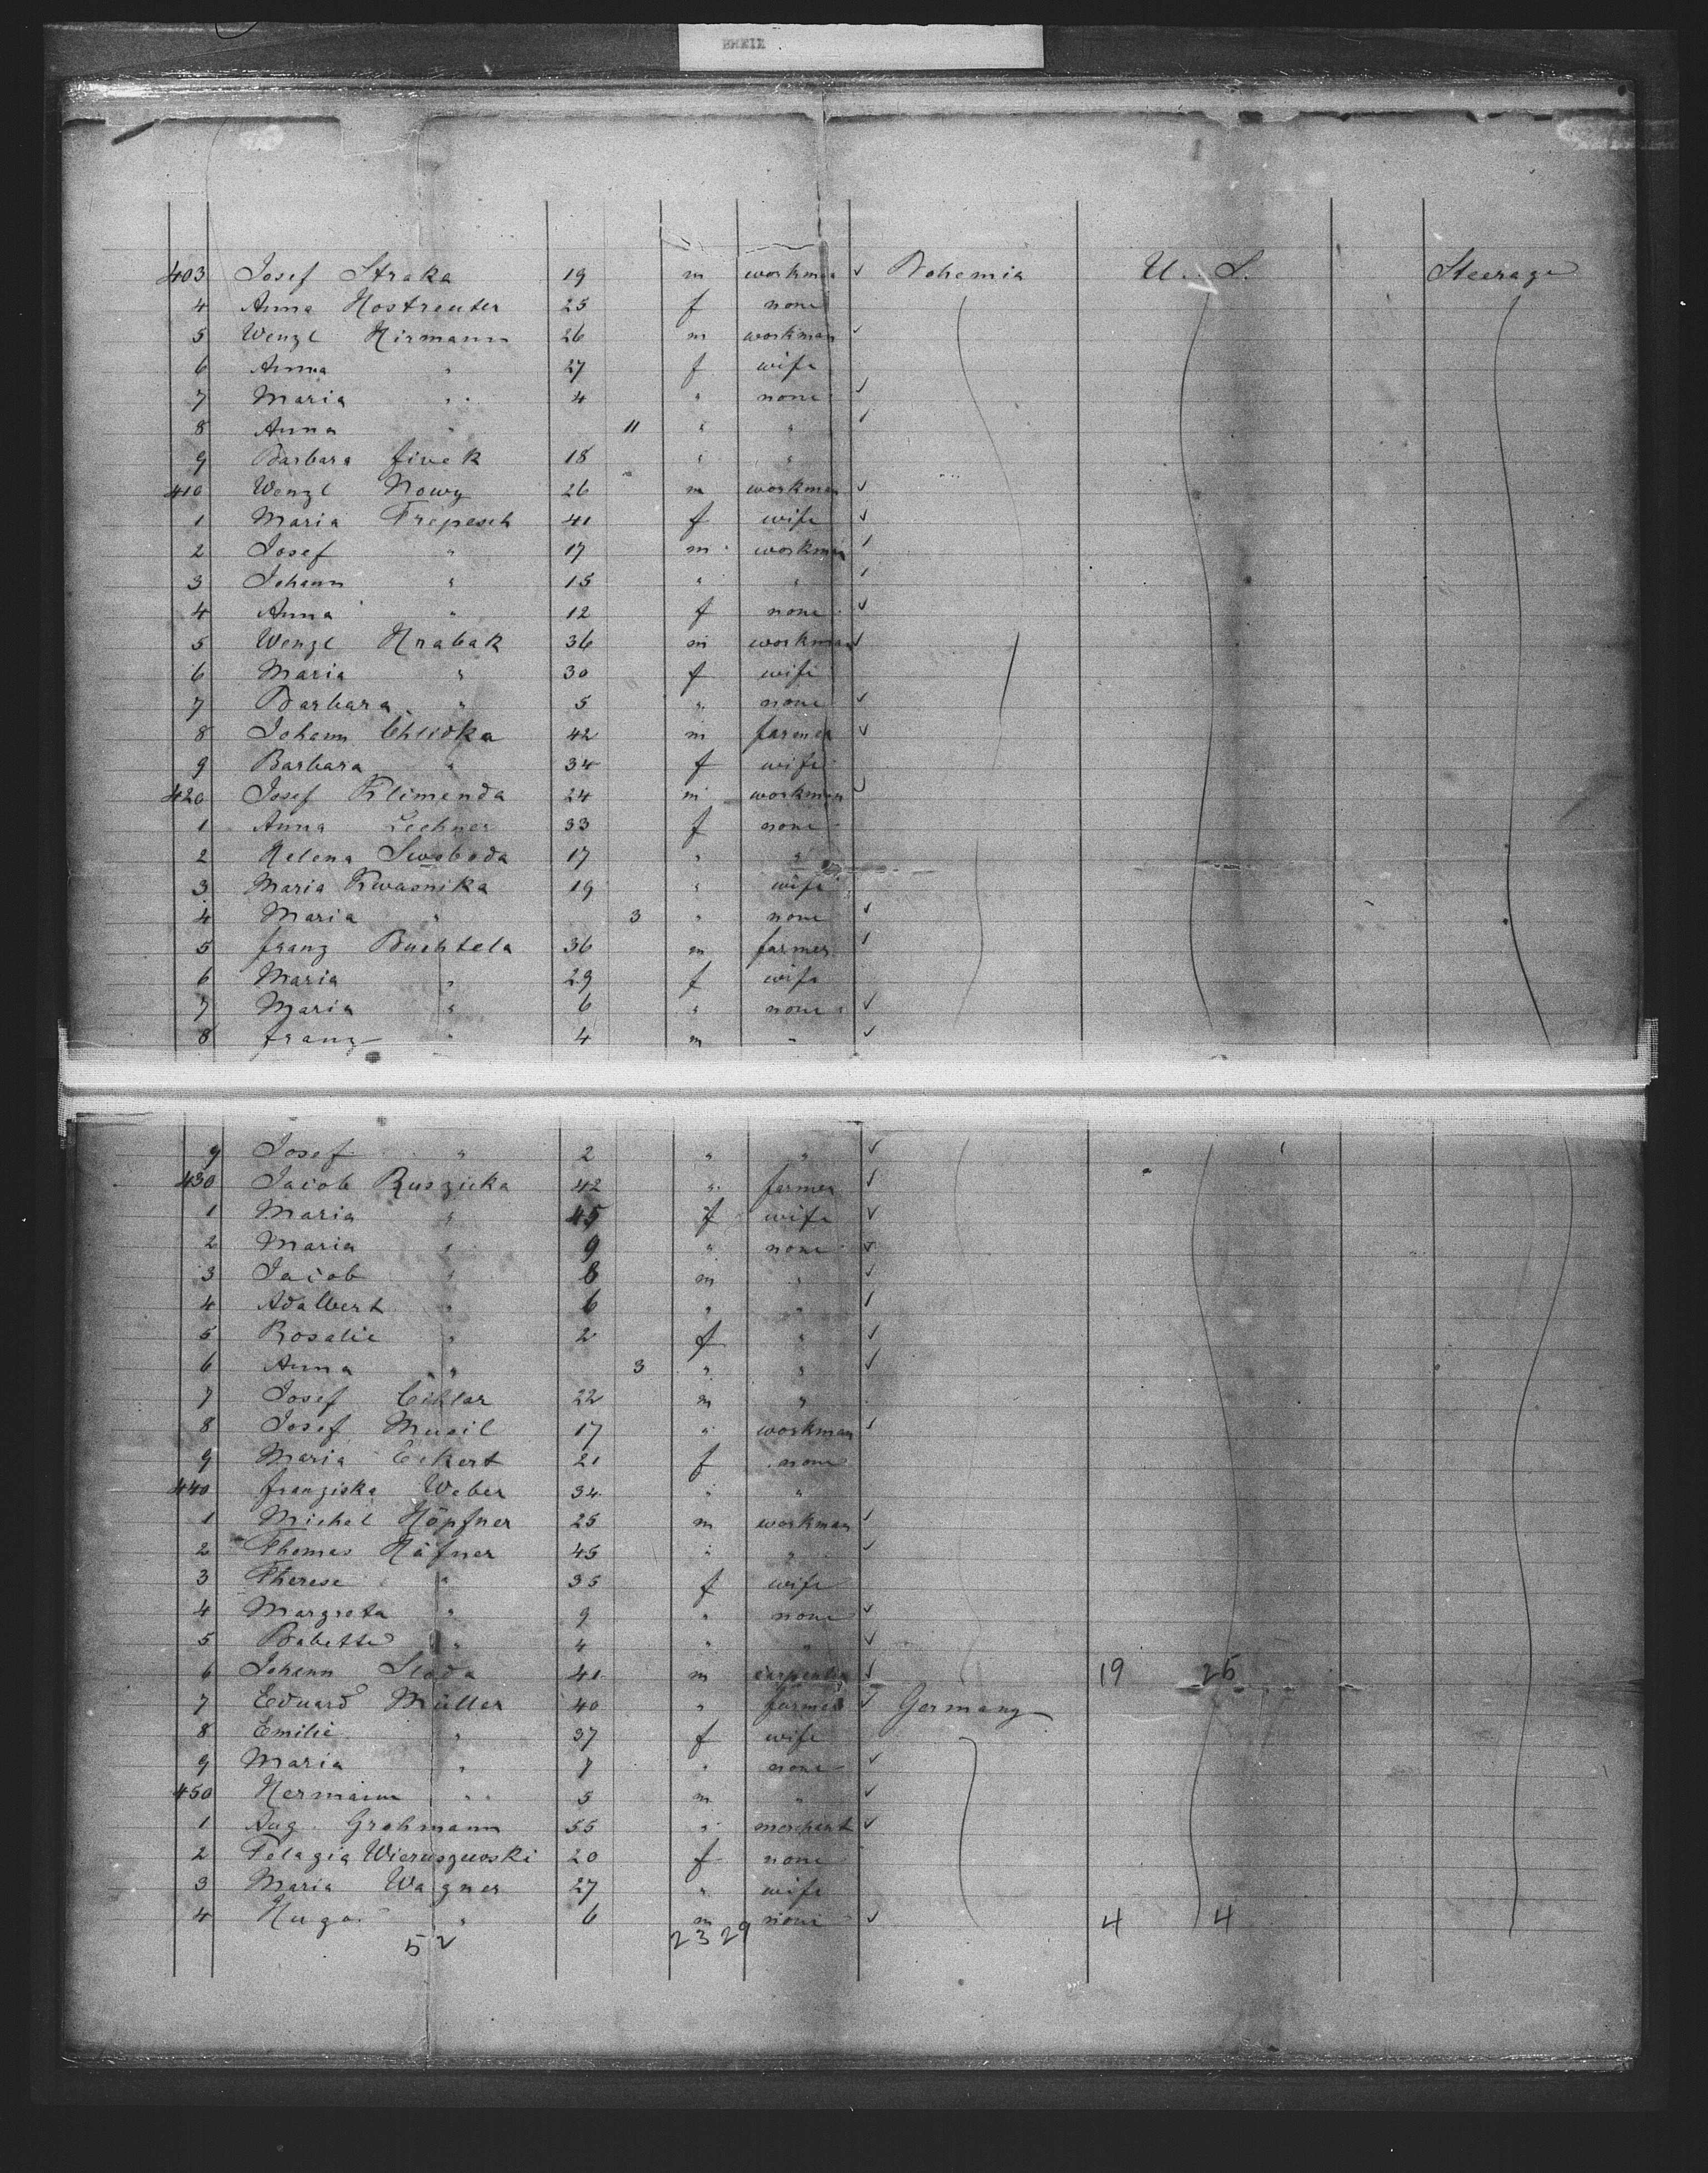 403 Josef Straka 19 m workman ✓ Bohemia U. S. Steerage
4 Anna Hostreuter 25 f none
5 Wenzl Hirmann 26 m workman ✓
6 Anna " 27 f wife
7 Maria " 4 " none ✓
8 Anna " 11 " " ✓
9 Barbara Jivek 18 " "
410 Wenzl Nowy 26 m workman ✓
1 Maria Trepesch 41 f wife ✓
2 Josef " 17 m workman ✓
3 Johann " 15 " " ✓
4 Anna " 12 f none ✓
5 Wenzl Hrabak 36 m workman ✓
6 Maria " 30 f wife
7 Barbara " 5 " none ✓
8 Johann Chlidka 42 m farmer ✓
9 Barbara " 34 f wife
420 Josef Klimenda 24 m workman ✓
1 Anna Lechner 33 f none
2 Helena Swoboda 17 " "
3 Maria Kwasnika 19 " wife
4 Maria " 3 " none ✓
5 Franz Buchtela 36 m farmer ✓
6 Maria " 29 f wife
7 Maria " 6 " none ✓
8 Franz " 4 m " ✓
9 Josef " 2 " " ✓
430 Jacob Ruszicka 42 " farmer ✓
1 Maria " 45 f wife ✓
2 Maria " 9 " none ✓
3 Jacob " 8 m " ✓
4 Adalbert " 6 " " ✓
5 Rosalie " 2 f " ✓
6 Anna " 3 " " ✓
7 Josef Cihlar 22 m "
8 Josef Musil 17 " workman ✓
9 Maria Eckert 21 f none
440 Franziska Weber 34 " "
1 Michel Höpfner 25 m workman ✓
2 Thomas Häfner 45 " " ✓
3 Therese " 35 f wife
4 Margreta " 9 " none ✓
5 Babette " 4 " " ✓
6 Johann Sloda 41 m carpenter ✓ 19 25
7 Eduard Müller 40 " farmer ✓ Germany
8 Emilie " 37 f wife
9 Maria " 7 " none ✓
450 Hermann " 5 m " ✓
1 Aug. Grohmann 55 " merchant ✓
2 Pelagia Wieruszewski 20 f none
3 Maria Wagner 27 " wife
4 Hugo " 6 m none ✓ 4 4
52 23 29